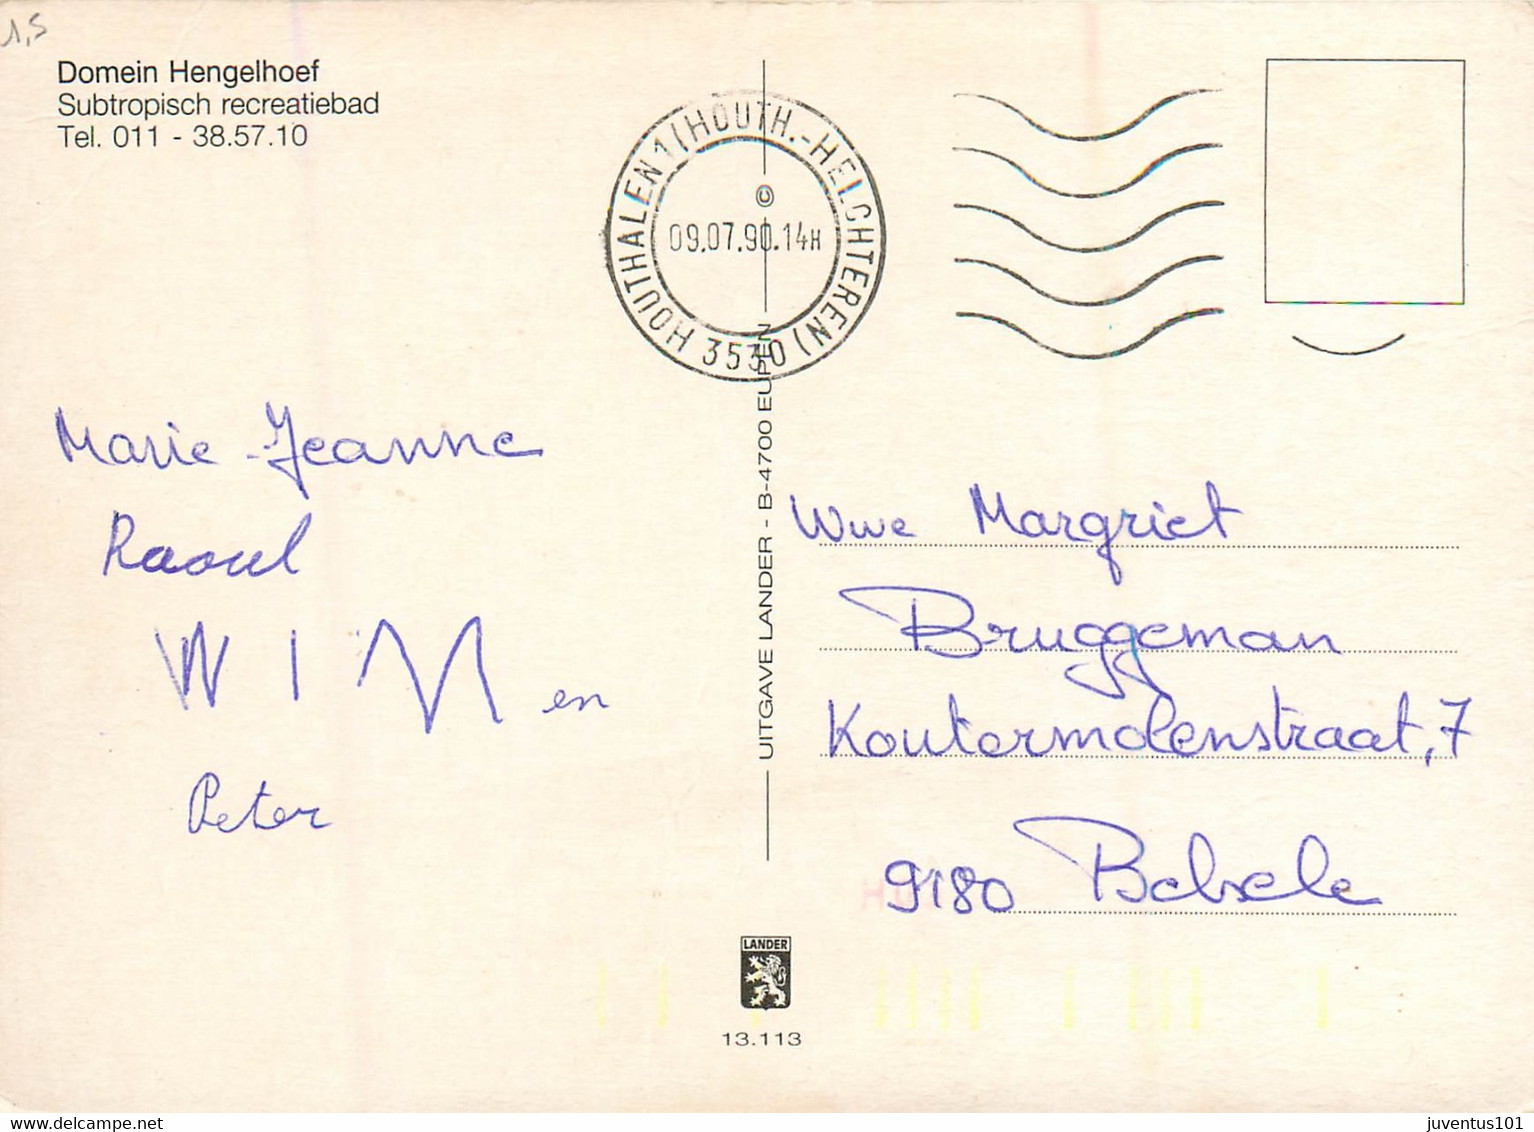 1,5
Domein Hengelhoef
Subtropisch recreatiebad
Tel. 011 - 38.57.10
HOUTHALEN 1 (HOUTH.-HELCHTEREN)
C
09.07.90.14H
3530
Marie-Jeanne
Raoul
WIM en
Peter
UITGAVE LANDER - B-4700 EUPEN
Wwe Margriet
Bruggeman
Koutermolenstraat, 7
9180 Belsele
LANDER
13.113
juventus101